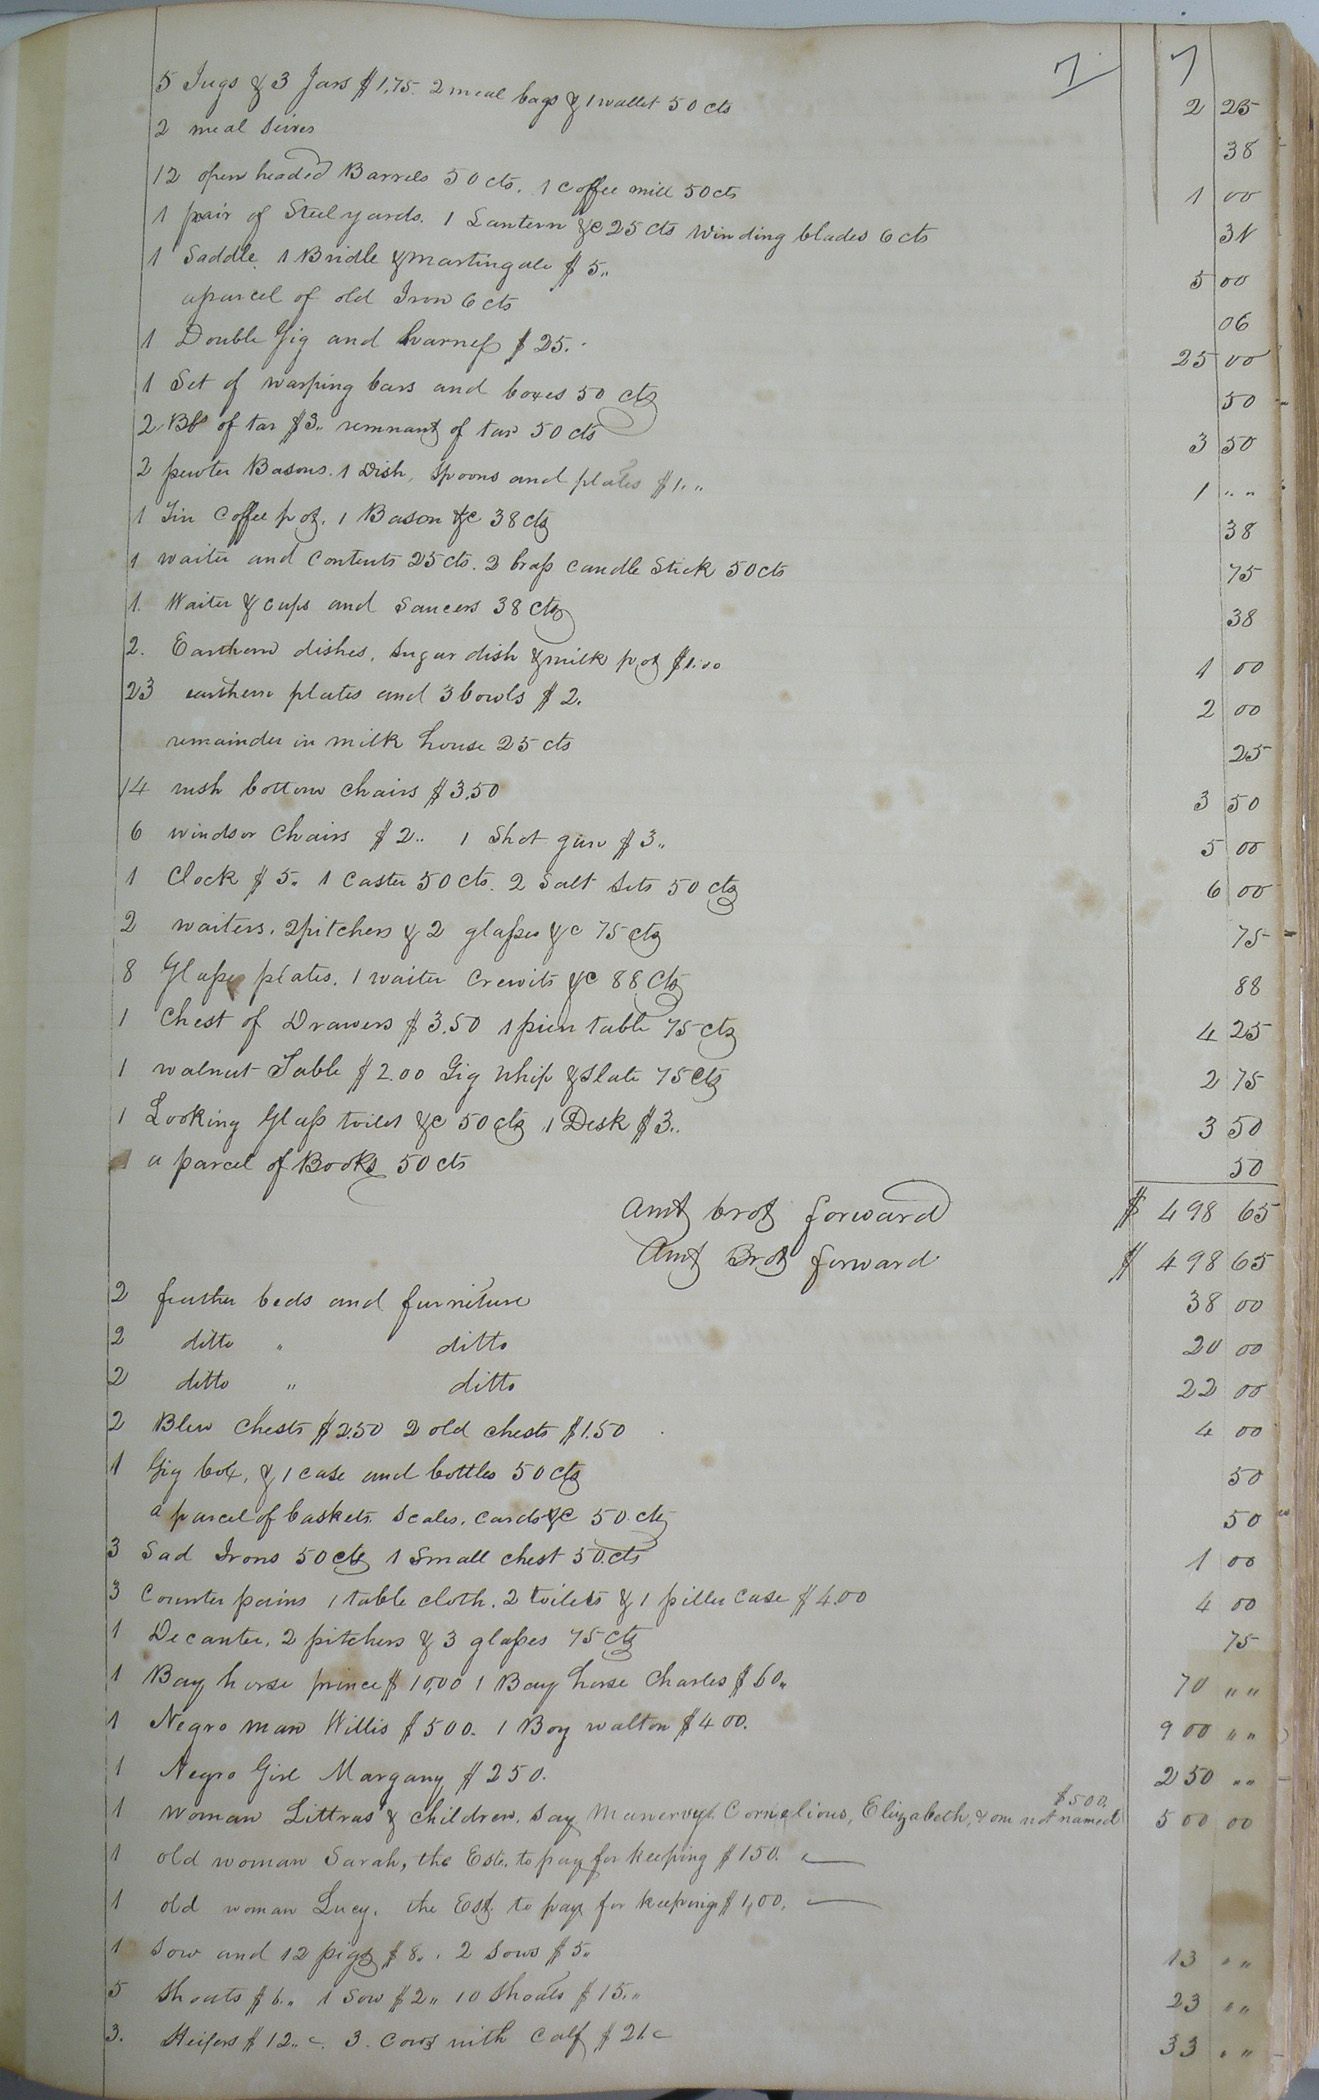 7 7
5 Jugs & 3 Jars $1.75. 2 meal bags & 1 wallet 50 cts 2 25
2 meal sives 38
12 open headed Barrels 50 cts. 1 Coffee mill 50 cts 1 00
1 pair of Steelyards. 1 Lantern &c 25 cts Winding blades 6 cts 31
1 Saddle. 1 Bridle & martingale $ 5.. 5 00
a parcel of old Iron 6 cts 06
1 Double Gig and harness $ 25. 25 00
1 Set of warping bars and boxes 50 cts 50
2 Bbs of tar $3.. remnant of tar 50 cts 3 50
2 pewter Basons. 1 Dish, Spoons and plates $ 1. .. 1 " "
1 Tin Coffee pot. 1 Bason &c 38 cts 38
1 waiter and contents 25 cts. 2 brass candle Stick 50 cts 75
1. Waiter & cups and Saucers 38 cts 38
2. Earthern dishes, Sugar dish & milk pot $1.00 1 00
23 earthern plates and 3 bowls $ 2. 2 00
remainder in milk house 25 cts 25
14 rush bottom chairs $ 3.50 3 50
6 windsor Chairs $ 2.. 1 Shot gun $ 3.. 5 00
1 Clock $ 5. 1 caster 50 cts. 2 Salt sets 50 cts 6 00
2 waiters. 2 pitchers & 2 glasses &c 75 cts 75
8 Glass plates. 1 waiter Crewits &c 88 Cts 88
1 Chest of Drawers $ 3.50 1 pien table 75 cts 4 25
1 walnut Table $ 2.00 Gig Whip & Slate 75 Cts 2 75
1 Looking Glass toilet &c 50 cts 1 Desk $ 3.. 3 50
1 a parcel of Books 50 cts 50
Amt brot forward $ 498 65
Amt Brot forward $ 498 65
2 feather beds and furniture 38 00
2 ditto " ditto 20 00
2 ditto " ditto 22 00
2 Blew Chests $ 2.50 2 old chests $ 1.50 4 00
1 Gig box, & 1 case and bottles 50 cts 50
a parcel of baskets. Scales, cards &c 50 cts 50
3 Sad Irons 50 cts 1 Small chest 50 cts 1 00
3 Counter pains 1 table cloth. 2 toilets & 1 piller case $ 4.00 4 00
1 Decanter. 2 pitchers & 3 glasses 75 cts 75
1 Bay horse prince $ 10,00 1 Bay horse Charles $ 60.. 70 " "
1 Negro man Willis $ 500. 1 Boy walton $ 400. 900 " "
1 Negro Girl Margany $ 250. 250 " "
1 Woman Littras & children, say Manervy. Cornelious, Elizabeth, & one not named $500. 500 00
1 old woman Sarah, the Este. to pay for keeping $ 150.
1 old woman Lucy. the Est. to pay for keeping $ 1,00.
1 Sow and 12 pigs $ 8.. 2 Sows $ 5. 13 " "
5 Shoats $ 6.. 1 Sow $ 2.. 10 Shoats $ 15.. 23 " "
3. Heifers $ 12.. 3. Cows with Calf $ 21. 33 " "